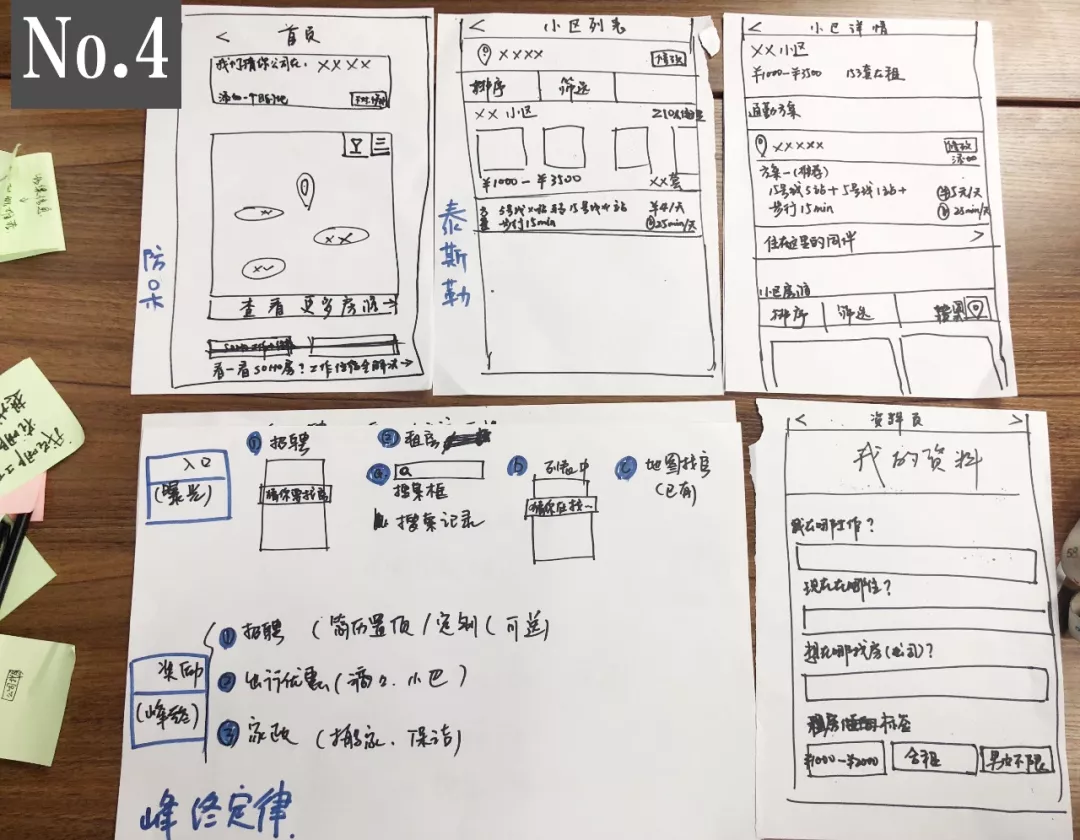 No.4
首页
我们猜你公司在: XXXX
添加一个目的地
查看更多房源→
看一看SOHO房?工作住宿全解决→
防呆
小区列表
XXXX
修改
排序 筛选
XX小区
¥1000-¥3500 XX套
步行15min
¥4/天
25min/天
泰斯勒
小区详情
XX小区
¥1000-¥3500 153套在租
通勤方案
XXXXX
修改
方案一(推荐)
15号线5站+5号线1站+
步行15min
5元/天
25min/天
住在这里的同伴 >
小区房源
排序 筛选
入口
(曝光)
① 招聘
② 租房
a
搜索框
搜索记录
b 列表中
c 地图找房
(已有)
(峰终)
① 招聘 (简历置顶/定制(可选)
② 出行优惠(滴滴、小巴)
③ 家政 (搬家、保洁)
峰终定律
资料页
我的资料
我在哪工作?
现在在哪住?
想在哪找房(公司)?
¥1000-¥2000 合租 男女不限